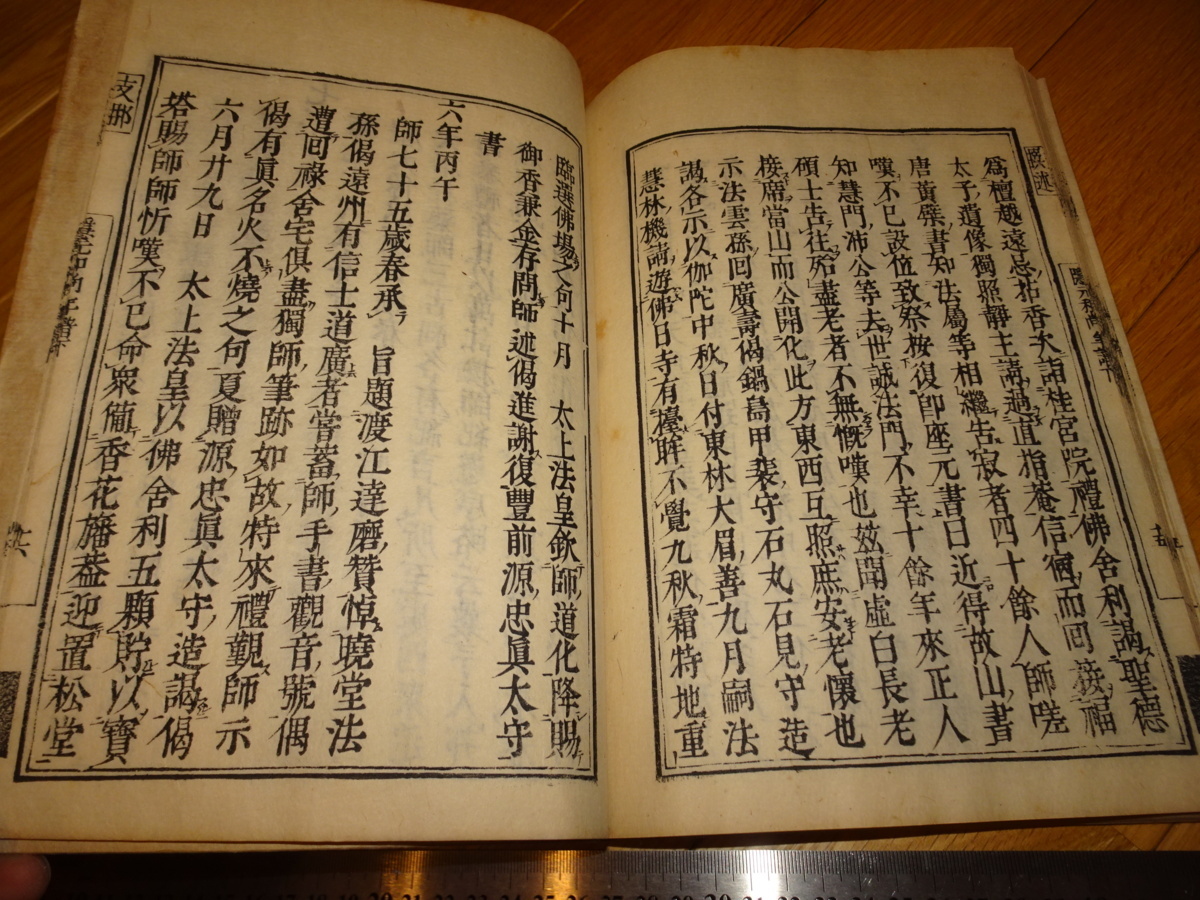 爲檀越遠忌拈香次詣桂宮院禮佛舍利謁聖德
太子遺像獨照靜主請過直指菴信宿而回接福
唐黃檗書知法屬等相繼告寂者四十餘人師嗟
嘆不已設位致祭按復卽座元書曰近得故山書
知慧門沛公等去世誠法門不幸十餘年來正人
碩士告往殆盡老者不無慨嘆也茲聞虛白長老
接席當山而公開化此方東西互照庶安老懷也
示法雲孫回廣壽偈鍋島甲裴守石丸石見守造
謁各示以伽陀中秋日付東林大眉善九月嗣法
慧林機請遊佛日寺有擡眸不覺九秋霜特地重
臨選佛場之句十月 太上法皇欽師道化降賜
御香兼金存問師述偈進謝復豐前源忠眞太守
書
六年丙午
師七十五歲春承 旨題渡江達磨贊悼曉堂法
孫偈遠州有信士道廣者嘗蓄師手書觀音號偶
遭回祿舍宅俱盡獨師筆跡如故特來禮覲師示
偈有眞名火不燒之句夏贈源忠眞太守造謁偈
六月廿九日 太上法皇以佛舍利五顆貯以寶
塔賜師師忻嘆不已命衆備香花旛蓋迎置松堂
支那